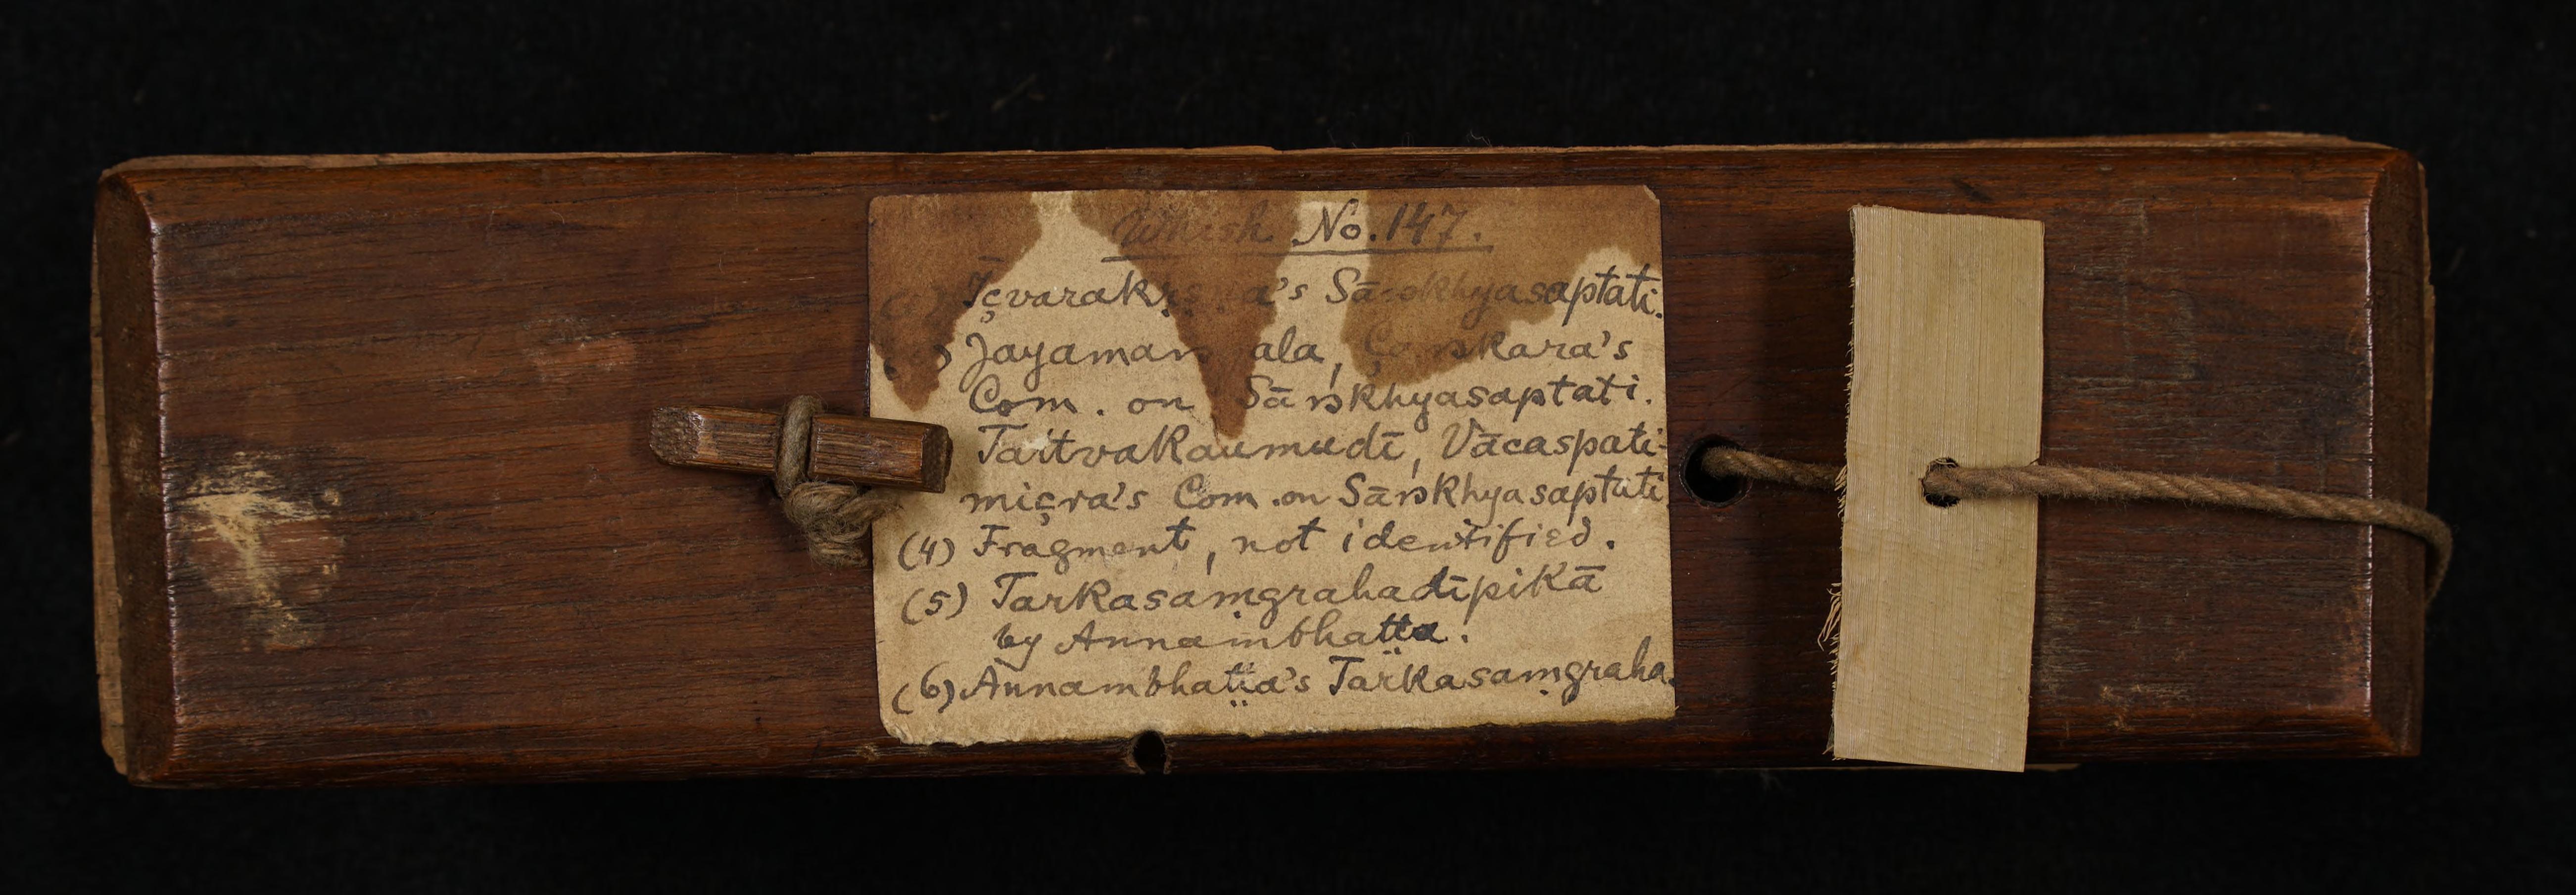 Whish No. 147.
Īçvarakṛṣṇa's Sāṅkhyasaptati.
Jayamaṅgala, Çaṅkara's
Com. on Sāṅkhyasaptati.
Tattvakaumudī, Vācaspati-
miçra's Com. on Sāṅkhyasaptati
(4) Fragment, not identified.
(5) Tarkasaṃgrahadīpikā
by Annambhaṭṭa.
(6) Annambhaṭṭa's Tarkasaṃgraha.